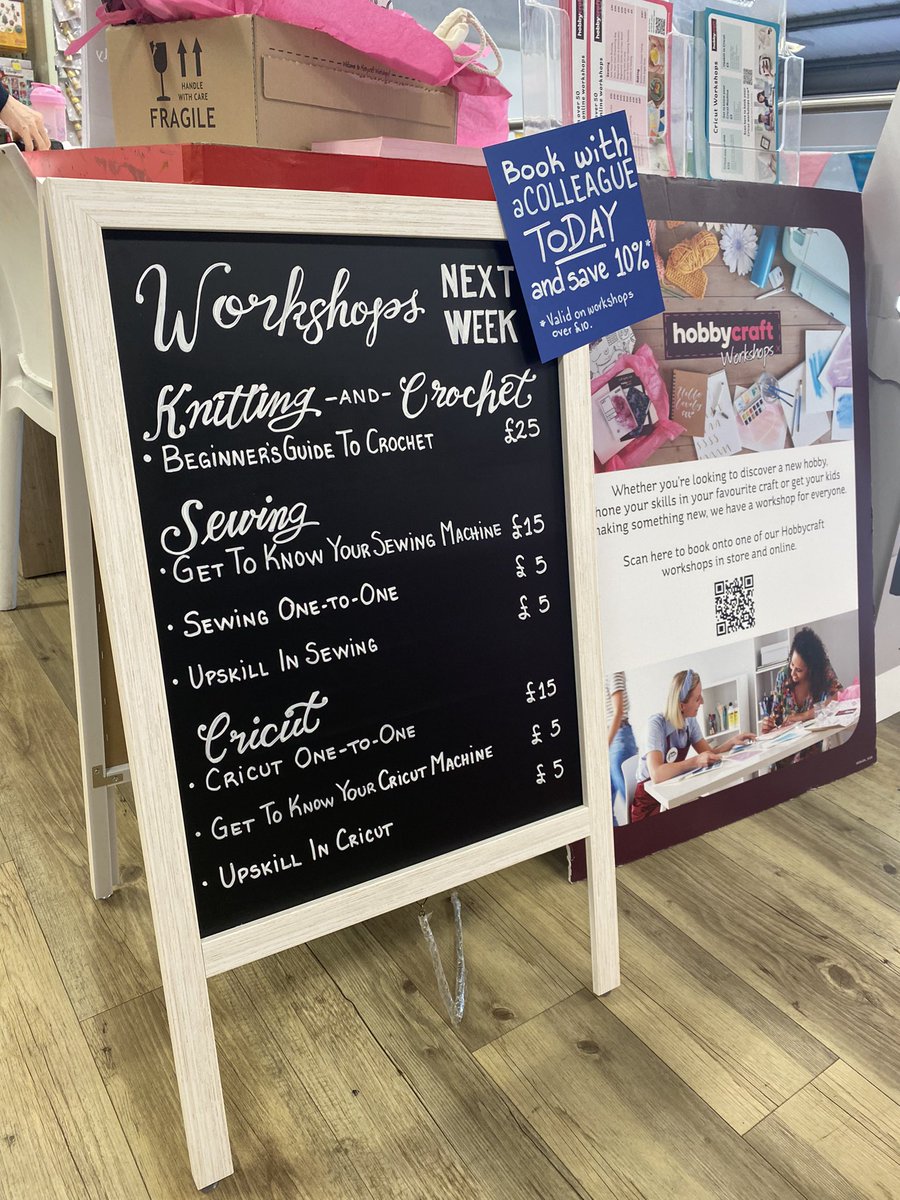 HANDLE
WITH CARE
FRAGILE
Book with
a COLLEAGUE
TODAY
and save 10%*
*Valid on workshops
over £10.
Workshops NEXT
WEEK
Knitting -AND- Crochet
• BEGINNER'S GUIDE TO CROCHET £25
Sewing
• GET TO KNOW YOUR SEWING MACHINE £15
• SEWING ONE-TO-ONE £5
• UPSKILL IN SEWING £5
Cricut
• CRICUT ONE-TO-ONE £15
• GET TO KNOW YOUR CRICUT MACHINE £5
• UPSKILL IN CRICUT £5
hobbycraft
Workshops
Whether you're looking to discover a new hobby,
hone your skills in your favourite craft or get your kids
making something new, we have a workshop for everyone.
Scan here to book onto one of our Hobbycraft
workshops in store and online.
over 50
online workshops
Cricut Workshops